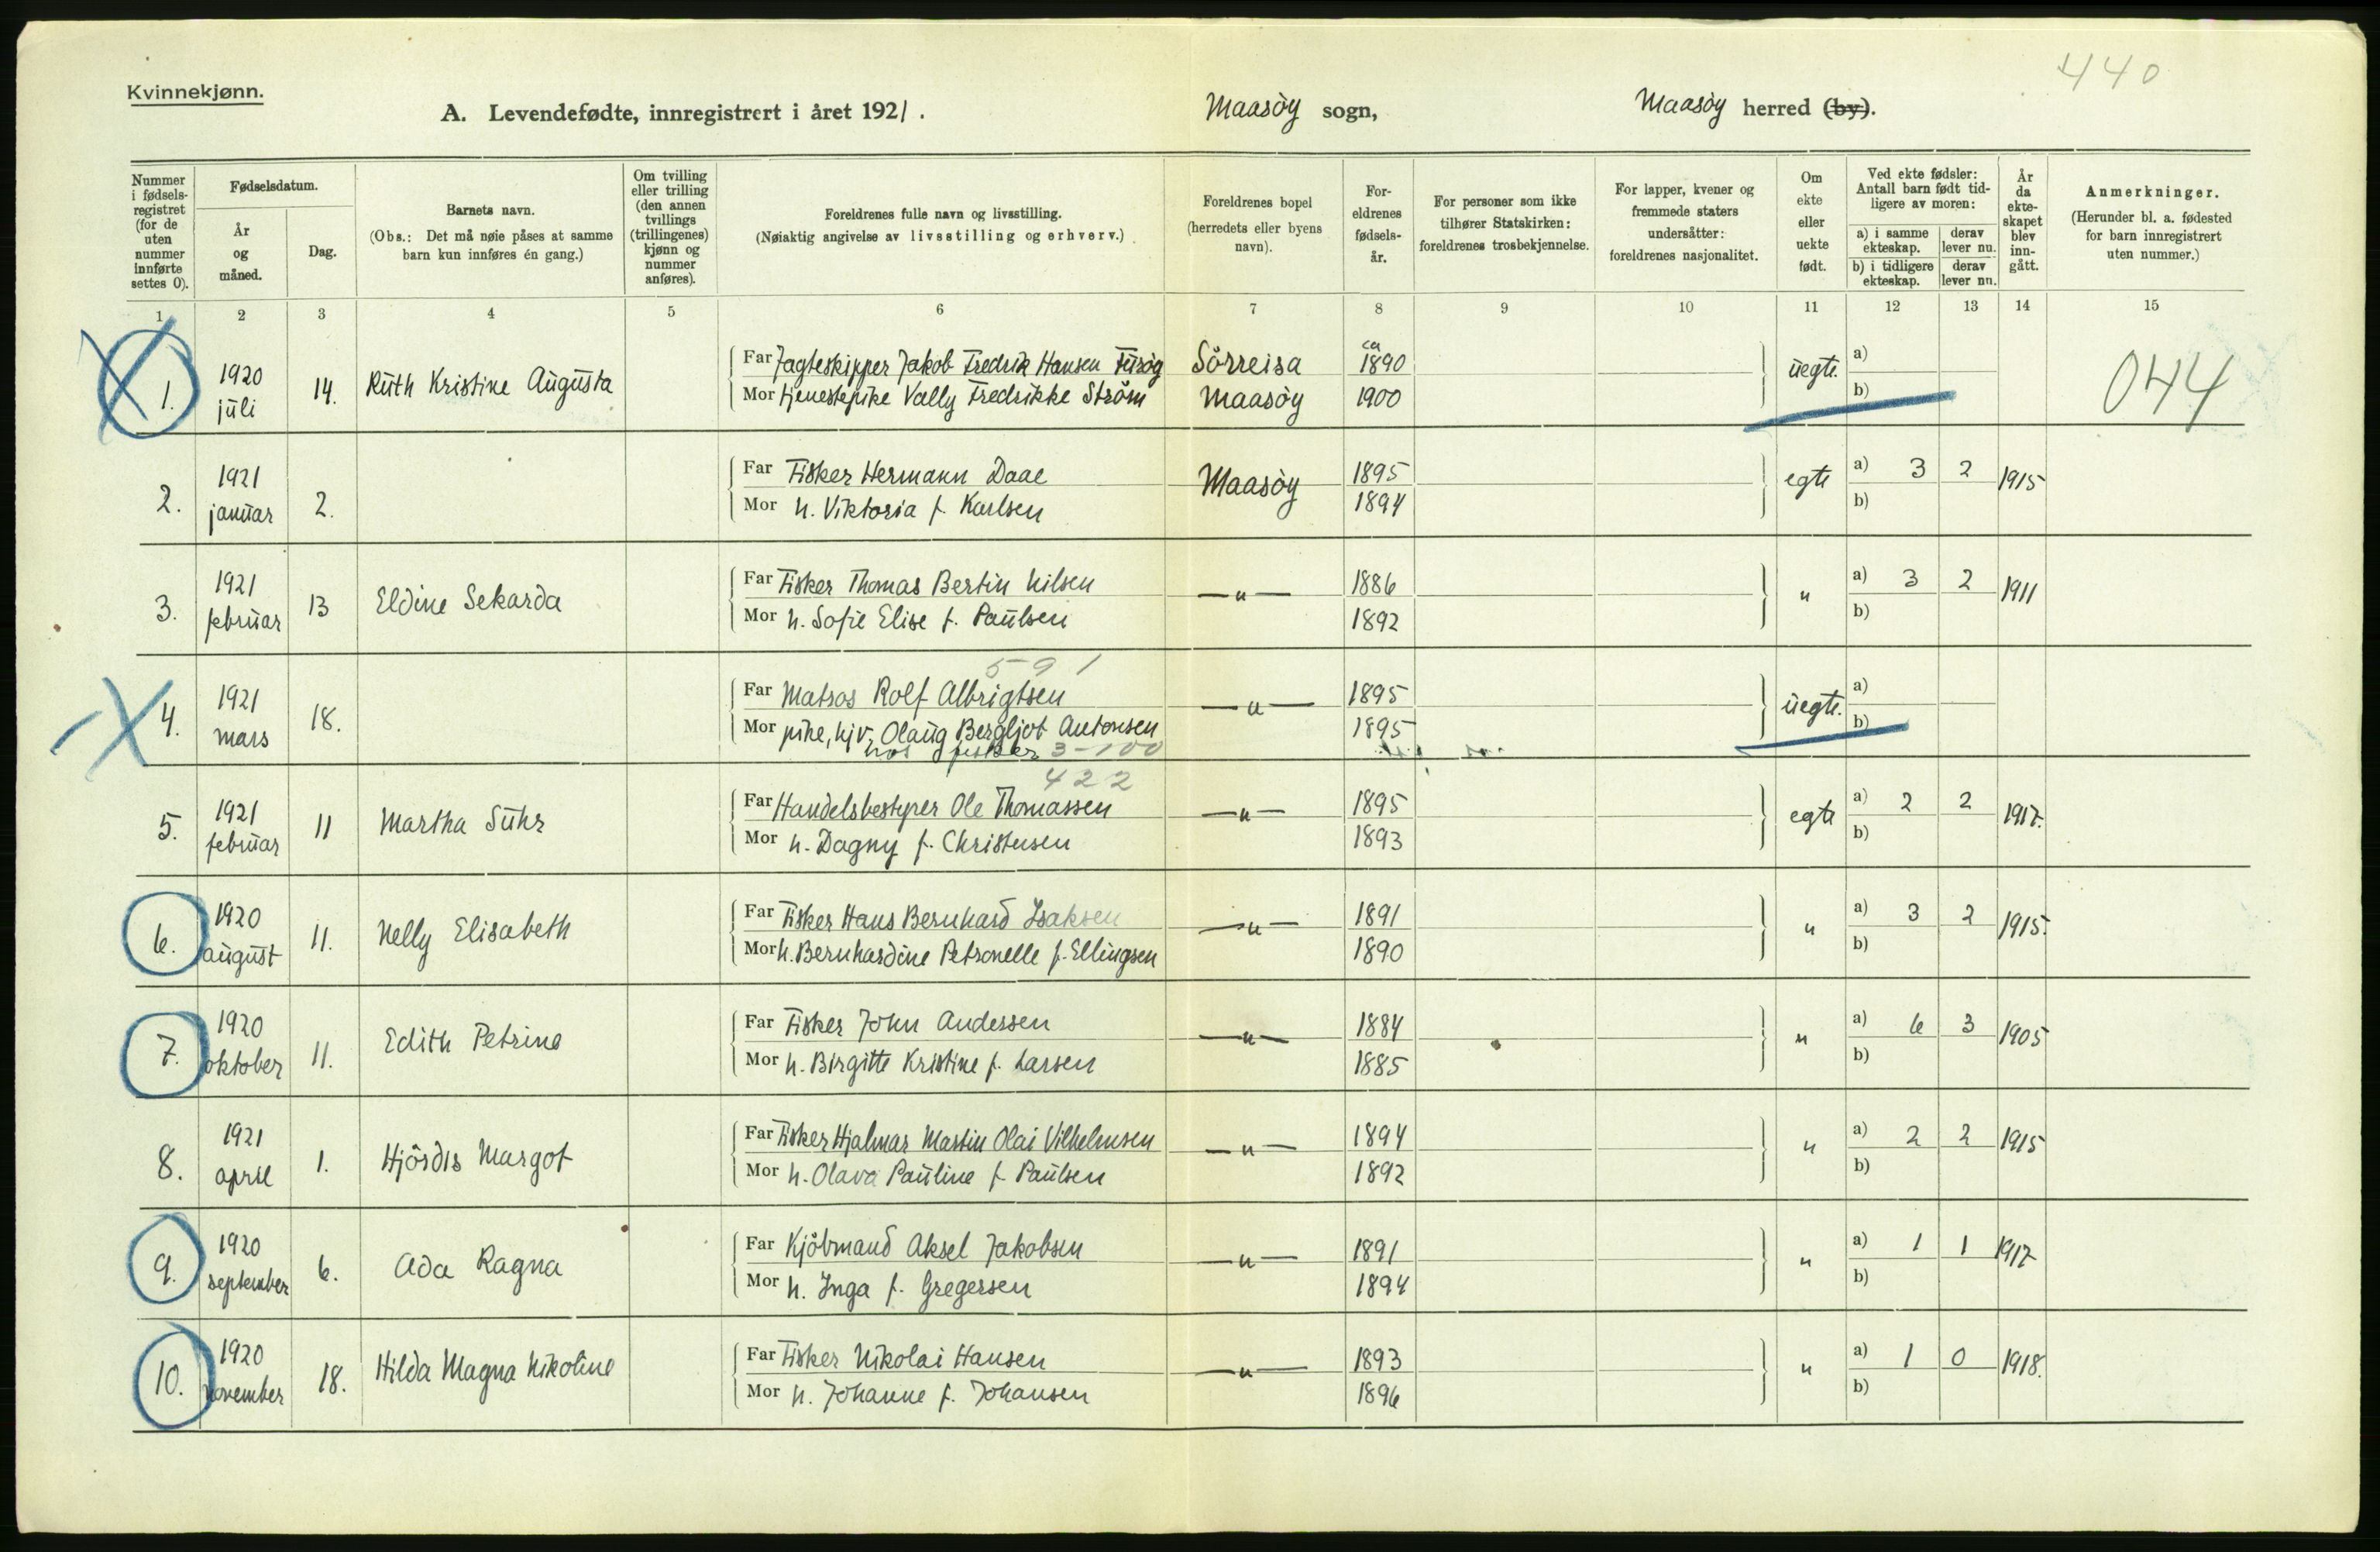 440
Kvinnekjønn.
A. Levendefødte, innregistrert i året 1921. Maasöy sogn, Maasöy herred (by).
Nummer i fødsels-registret (for de uten nummer innførte settes 0).
Fødselsdatum.
År og måned.
Dag.
Barnets navn.
(Obs.: Det må nøie påses at samme barn kun innføres én gang.)
Om tvilling eller trilling (den annen tvillings (trillingenes) kjønn og nummer anføres).
Foreldrenes fulle navn og livsstilling.
(Nøiaktig angivelse av livsstilling og erhverv.)
Foreldrenes bopel (herredets eller byens navn).
For-eldrenes fødsels-år.
For personer som ikke tilhører Statskirken: foreldrenes trosbekjennelse.
For lapper, kvener og fremmede staters undersåtter: foreldrenes nasjonalitet.
Om ekte eller uekte født.
Ved ekte fødsler: Antall barn født tid-ligere av moren:
a) i samme ekteskap. derav lever nu.
b) i tidligere ekteskap. derav lever nu.
År da ekte-skapet blev inn-gått.
Anmerkninger.
(Herunder bl. a. fødested for barn innregistrert uten nummer.)
1 2 3 4 5 6 7 8 9 10 11 12 13 14 15
1. 1920 juli 14. Ruth Kristine Augusta
Far Jagteskipper Jakob Fredrik Hansen Furöy Sörreisa ca 1890 uegte. a)
Mor tjenestepike Vally Fredrikke Ström Maasöy 1900 b)
044
2. 1921 januar 2.
Far Fisker Hermann Daae Maasöy 1895 egte a) 3 2 1915
Mor h. Viktoria f. Karlsen 1894 b)
3. 1921 februar 13 Eldine Sekarda
Far Fisker Thomas Bertin Nilsen —"— 1886 " a) 3 2 1911
Mor h. Sofie Elise f. Paulsen 1892 b)
591
4. 1921 mars 18.
Far Matros Rolf Albrigtsen —"— 1895 uegte. a)
Mor pike, hjv. Olaug Bergljot Antonsen 1895 b)
hos fisker 3-100
422
5. 1921 februar 11 Martha Suhr
Far Handelsbestyrer Ole Thomassen —"— 1895 egte a) 2 2 1917.
Mor h. Dagny f. Christensen 1893 b)
6. 1920 august 11. Nelly Elisabeth
Far Fisker Hans Bernhard Isaksen —"— 1891 " a) 3 2 1915.
Mor h. Bernhardine Petronelle f. Ellingsen 1890 b)
7. 1920 oktober 11. Edith Petrine
Far Fisker John Andersen —"— 1884 " a) 6 3 1905
Mor h. Birgitte Kristine f. Larsen 1885 b)
8. 1921 april 1. Hjördis Margot
Far Fisker Hjalmar Martin Olai Vilhelmsen —"— 1894 " a) 2 2 1915
Mor h. Olava Pauline f. Paulsen 1892 b)
9. 1920 september 6. Ada Ragna
Far Kjöbmand Aksel Jakobsen —"— 1891 " a) 1 1 1917
Mor h. Inga f. Gregersen 1894 b)
10. 1920 november 18. Hilda Magna Nikoline
Far Fisker Nikolai Hansen —"— 1893 " a) 1 0 1918.
Mor h. Johanne f. Johansen 1896 b)